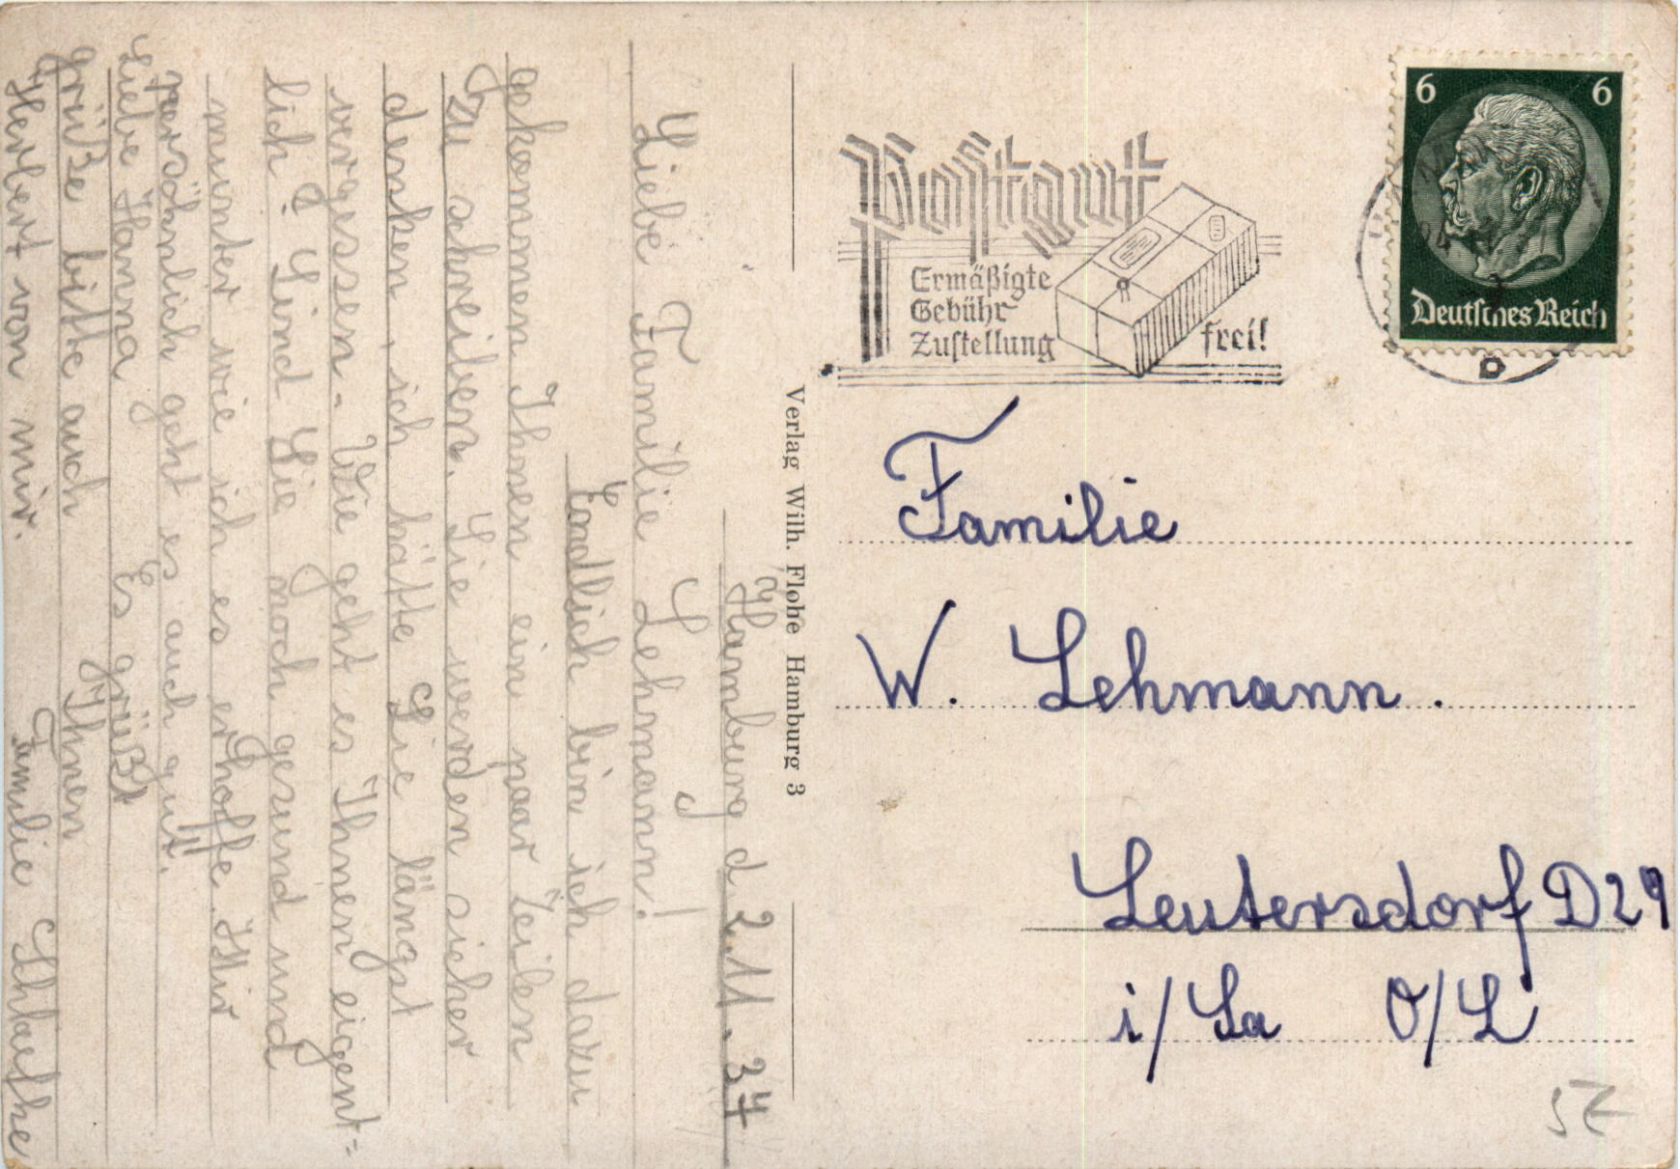 Hamburg d 2.11.37
Liebe Familie Lehmann!
Endlich bin ich dazu
gekommen Ihnen ein paar Zeilen
zu schreiben. Sie werden sicher
denken, ich hätte Sie längst
vergessen. Wie geht es Ihnen eigent=
lich? Sind Sie noch gesund und
munter wie ich es erhoffe. Mir
persöhnlich geht es auch gut.
Liebe Hanna Es grüßt
grüße bitte auch Ihnen
Herbert von mir. Familie
Verlag Wilh. Flohe Hamburg 3
Postgut
Ermäßigte
Gebühr
Zustellung frei!
6 6
Deutsches Reich
b
Familie
W. Lehmann.
Leutersdorf D29
i/Sa O/L